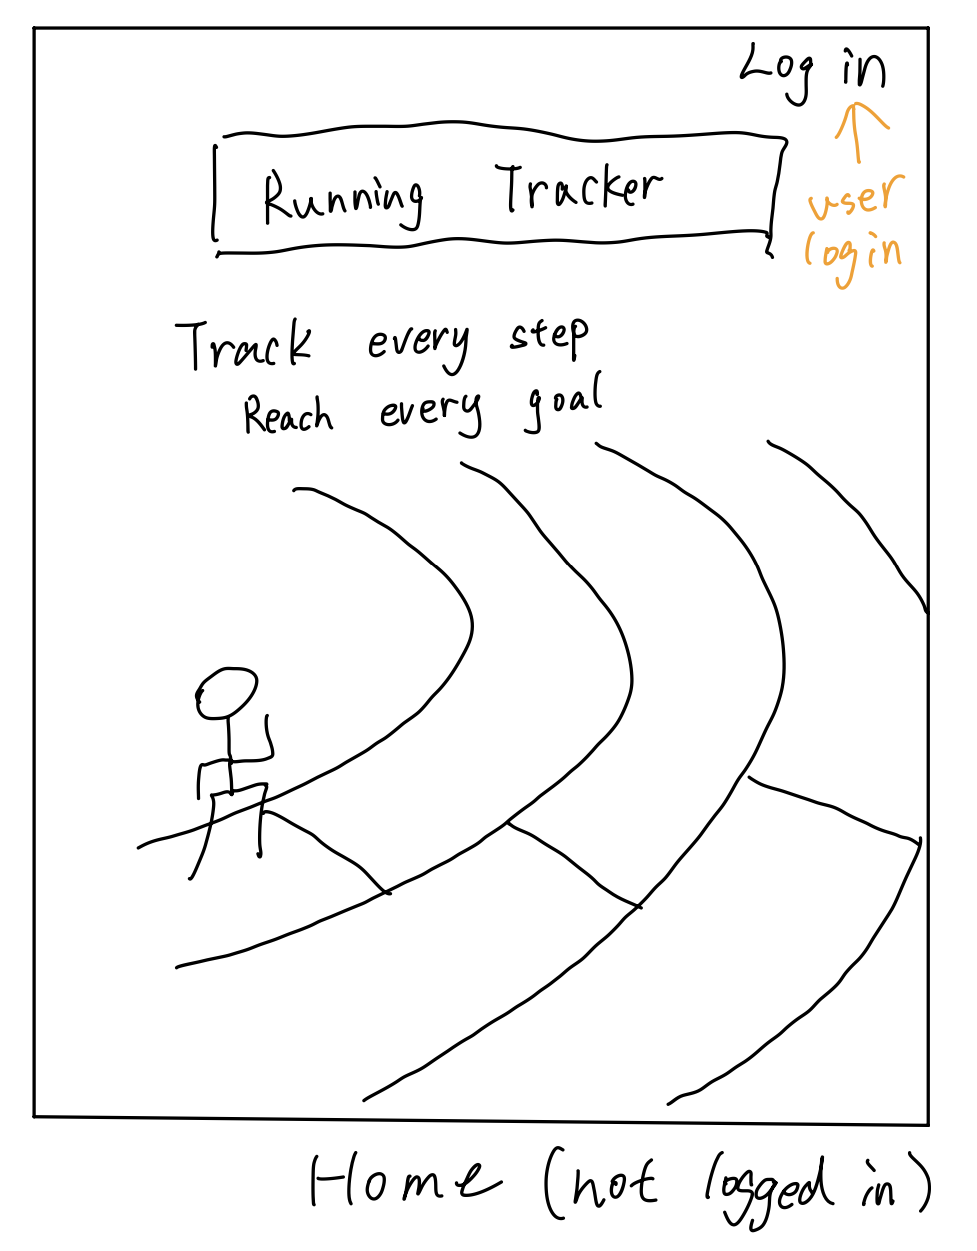 Log in
user
login
Running Tracker
Track every step
Reach every goal
Home (not logged in)